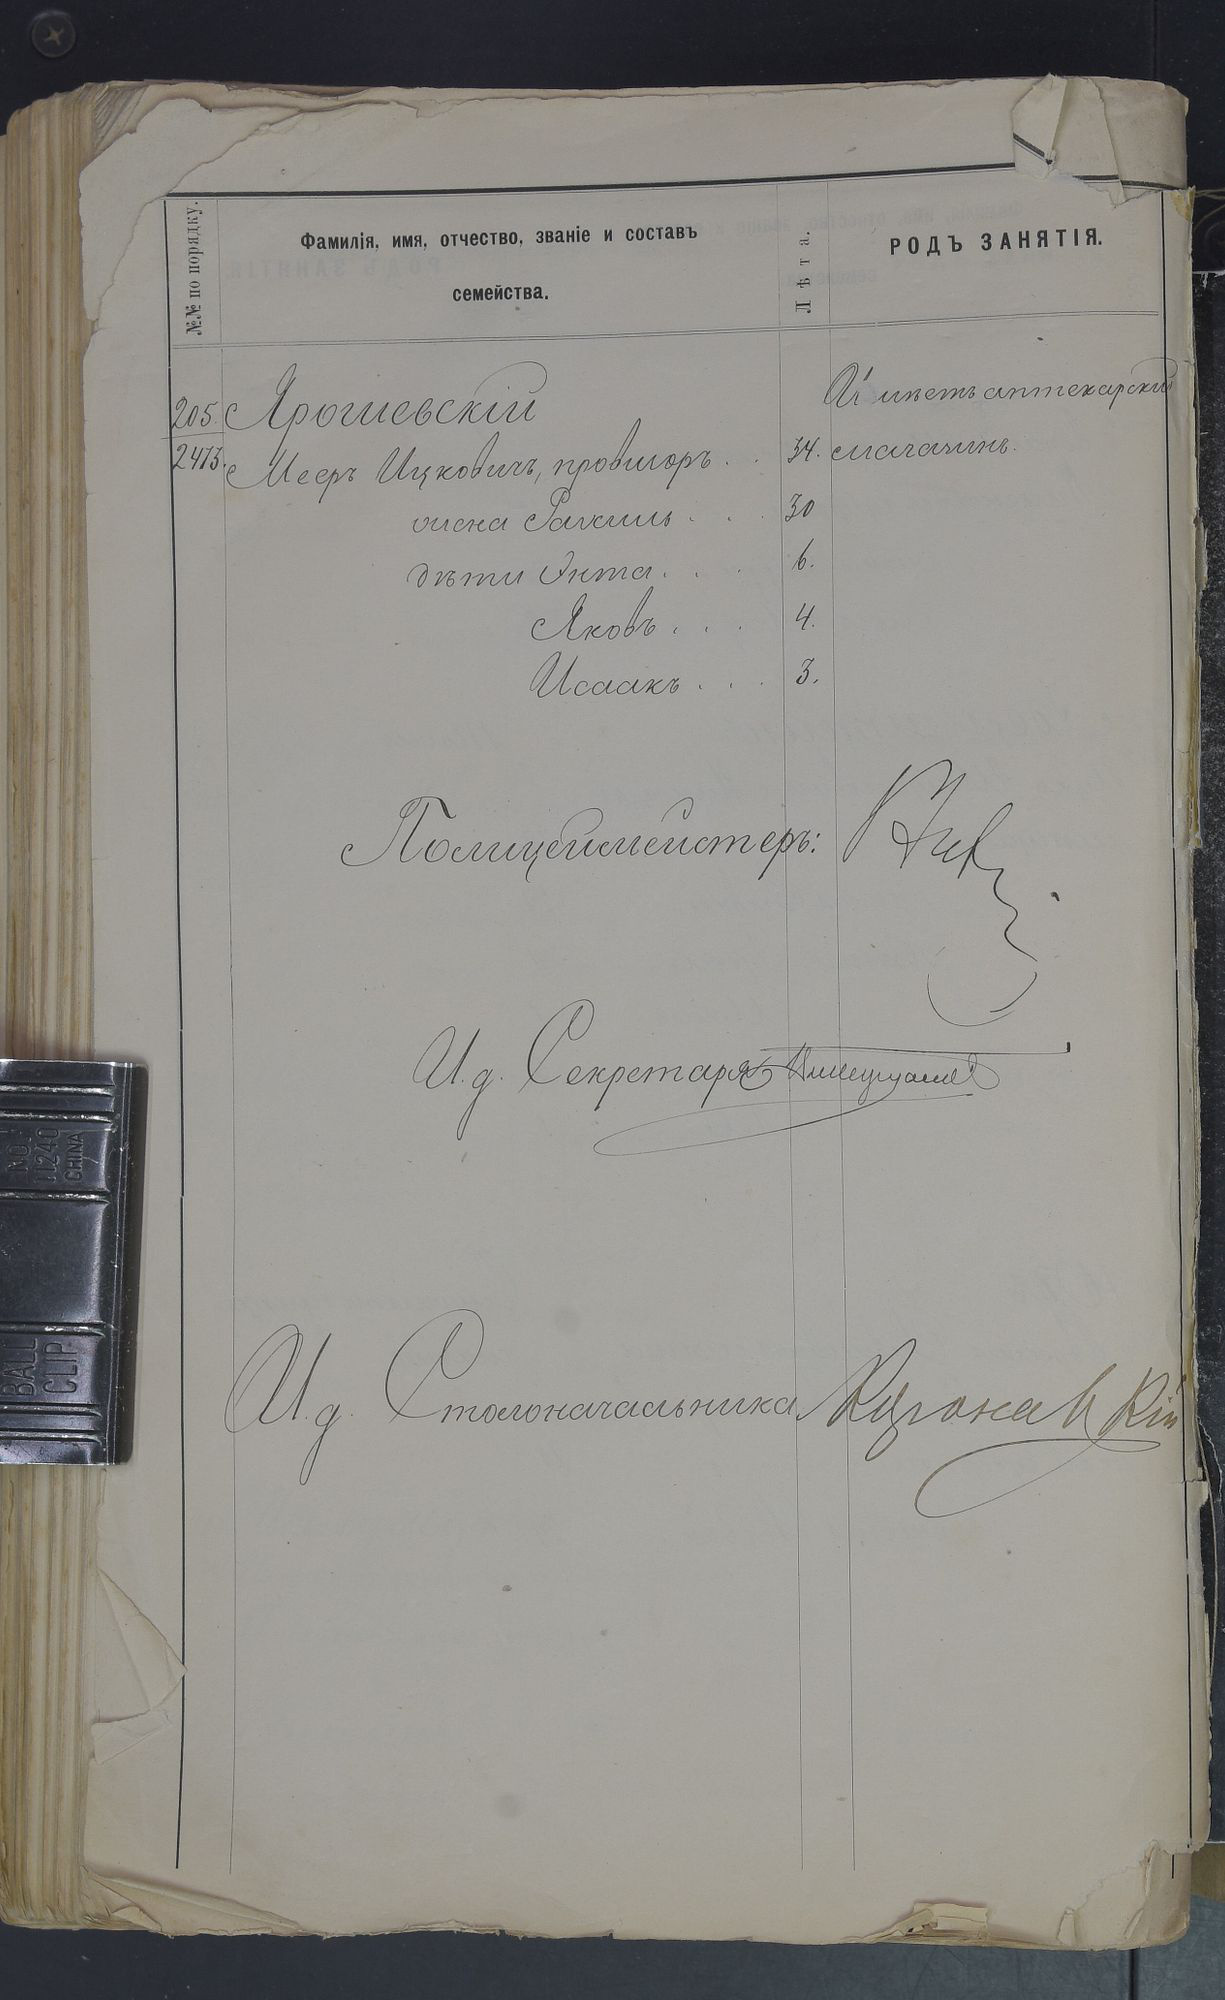 №№ по порядку.
Фамилія, имя, отчество, званіе и составъ
семейства.
Лѣта.
РОДЪ ЗАНЯТІЯ.
205. Ярошевскій
Имѣетъ аптекарскій
2473. Мееръ Ицковичъ, провизоръ . . 34. магазинъ.
жена Рахиль . . . 30
дѣти Энта . . . 6.
Яковъ . . . 4.
Исаакъ . . . 3.
Полицеймейстеръ:
И. д. Секретаря
И. д. Столоначальника
NO. 11240
CHINA
BALL
CLIP